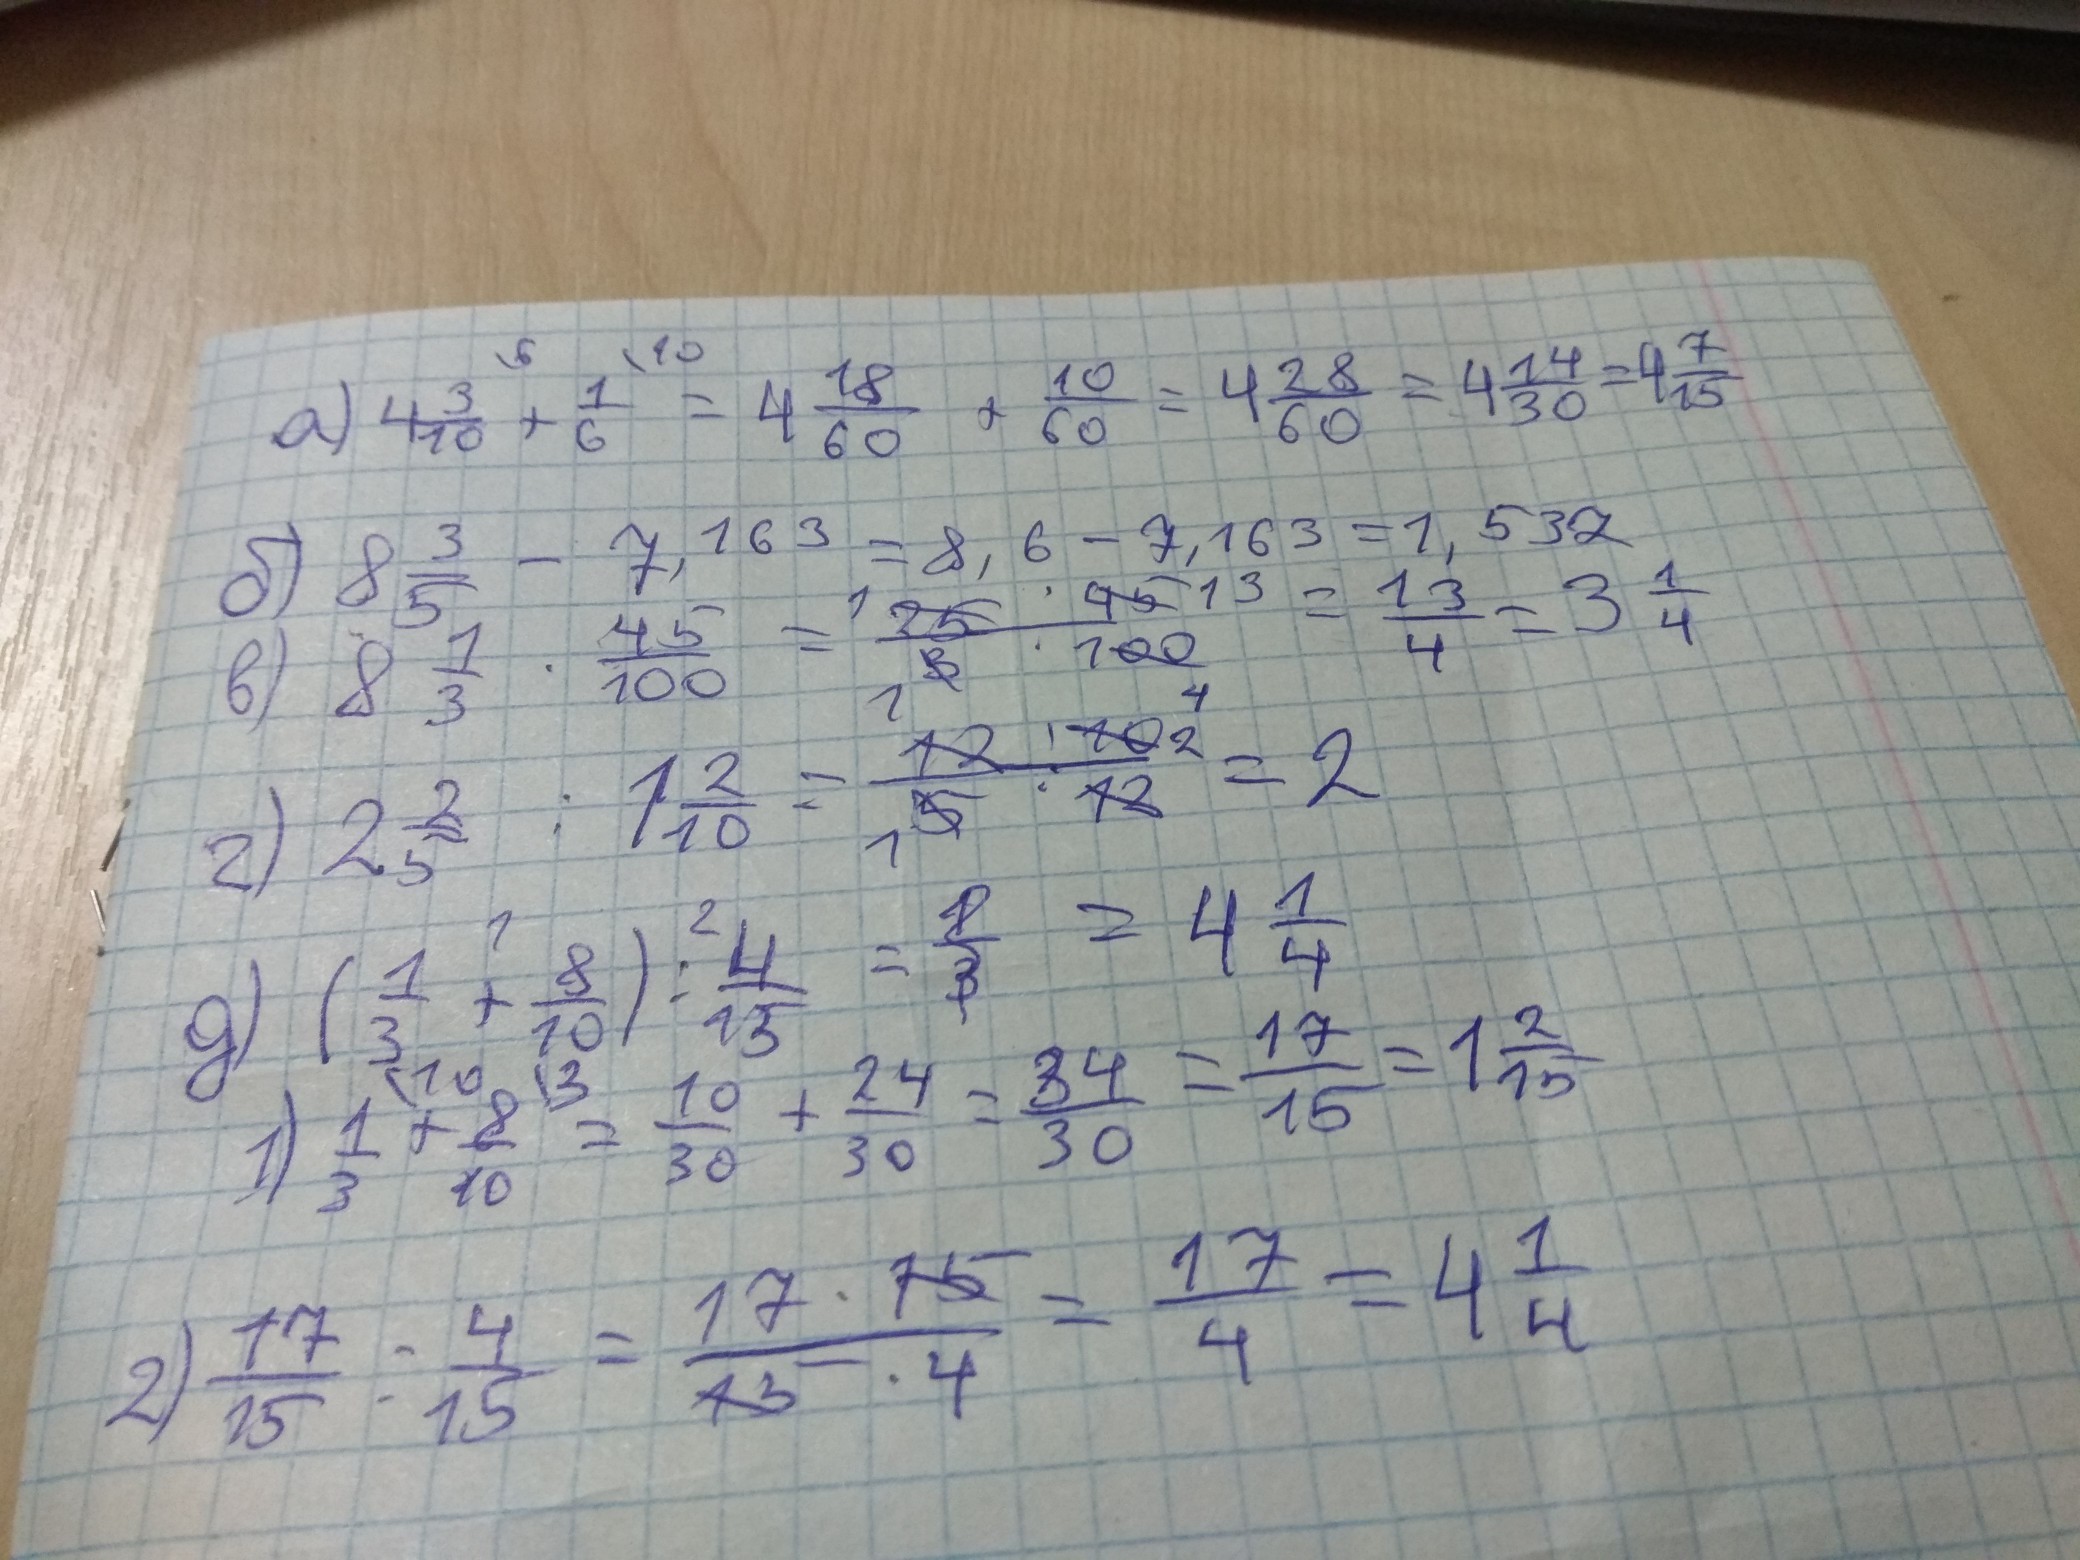 а) 4 3/10 \6 + 1/6 \10 = 4 18/60 + 10/60 = 4 28/60 = 4 14/30 = 4 7/15
б) 8 3/5 - 7,163 = 8,6 - 7,163 = 1,537
в) 8 1/3 · 45/100 = 1 25 · 45 13 / 1 3 · 100 4 = 13/4 = 3 1/4
г) 2 2/5 : 1 2/10 = 12 · 10 2 / 1 5 · 12 = 2
д) (1/3 +¹ 8/10) :² 4/15 = = 4 1/4
1) 1/3 \10 + 8/10 \3 = 10/30 + 24/30 = 34/30 = 17/15 = 1 2/15
2) 17/15 : 4/15 = 17 · 15 / 15 · 4 = 17/4 = 4 1/4